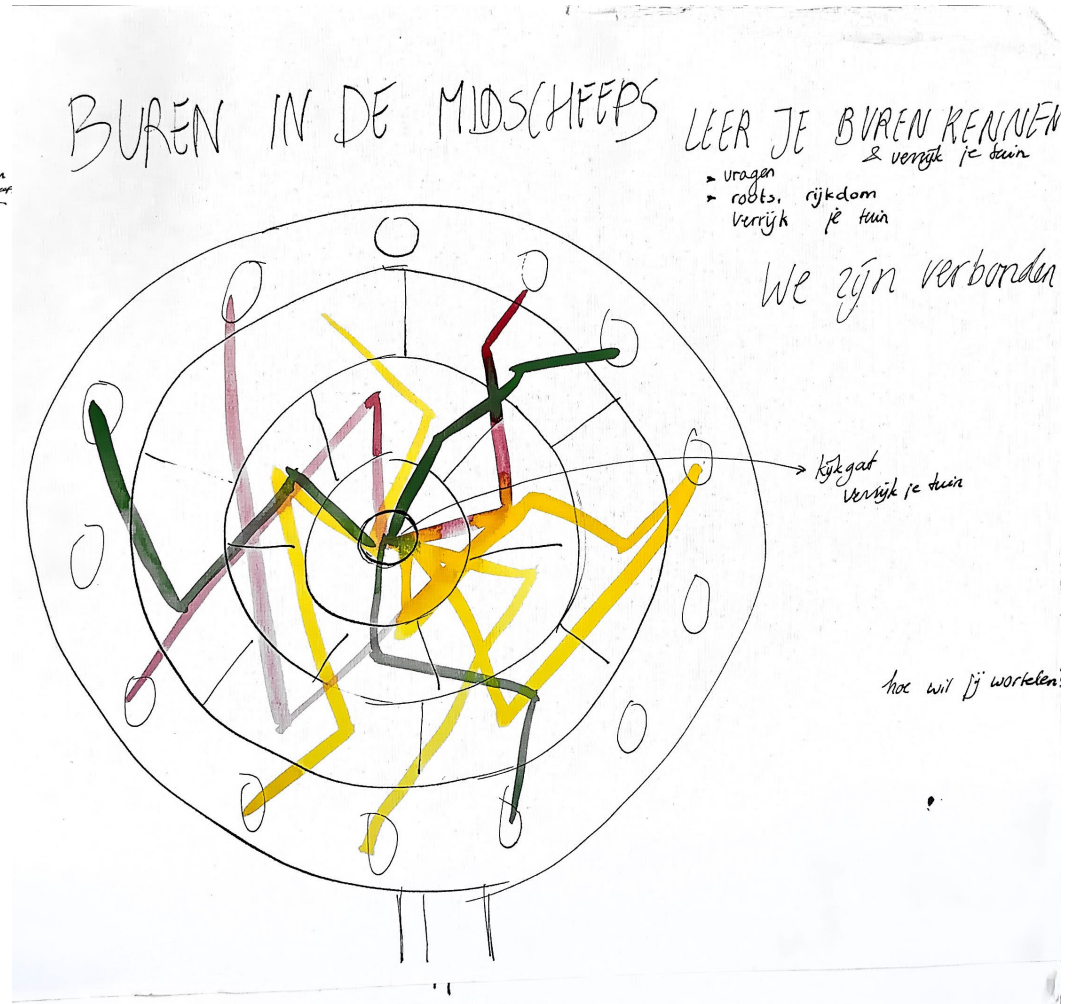 BUREN IN DE MIDSCHEEPS
LEER JE BUREN KENNEN
& verrijk je tuin
vragen
roots, rijkdom
verrijk je tuin
We zijn verbonden
kijkgat
verrijk je tuin
hoe wil jij wortelen?